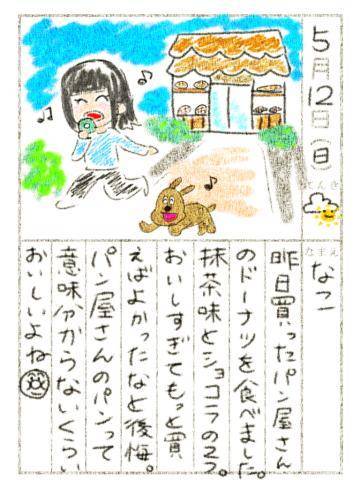 5月12日(日)
てんき
なまえ
なこ
昨日買ったパン屋さん
のドーナツを食べました。
抹茶味とショコラの2つ。
おいしすぎてもっと買
えばよかったなと後悔。
パン屋さんのパンって
意味分からないくらい
おいしいよね